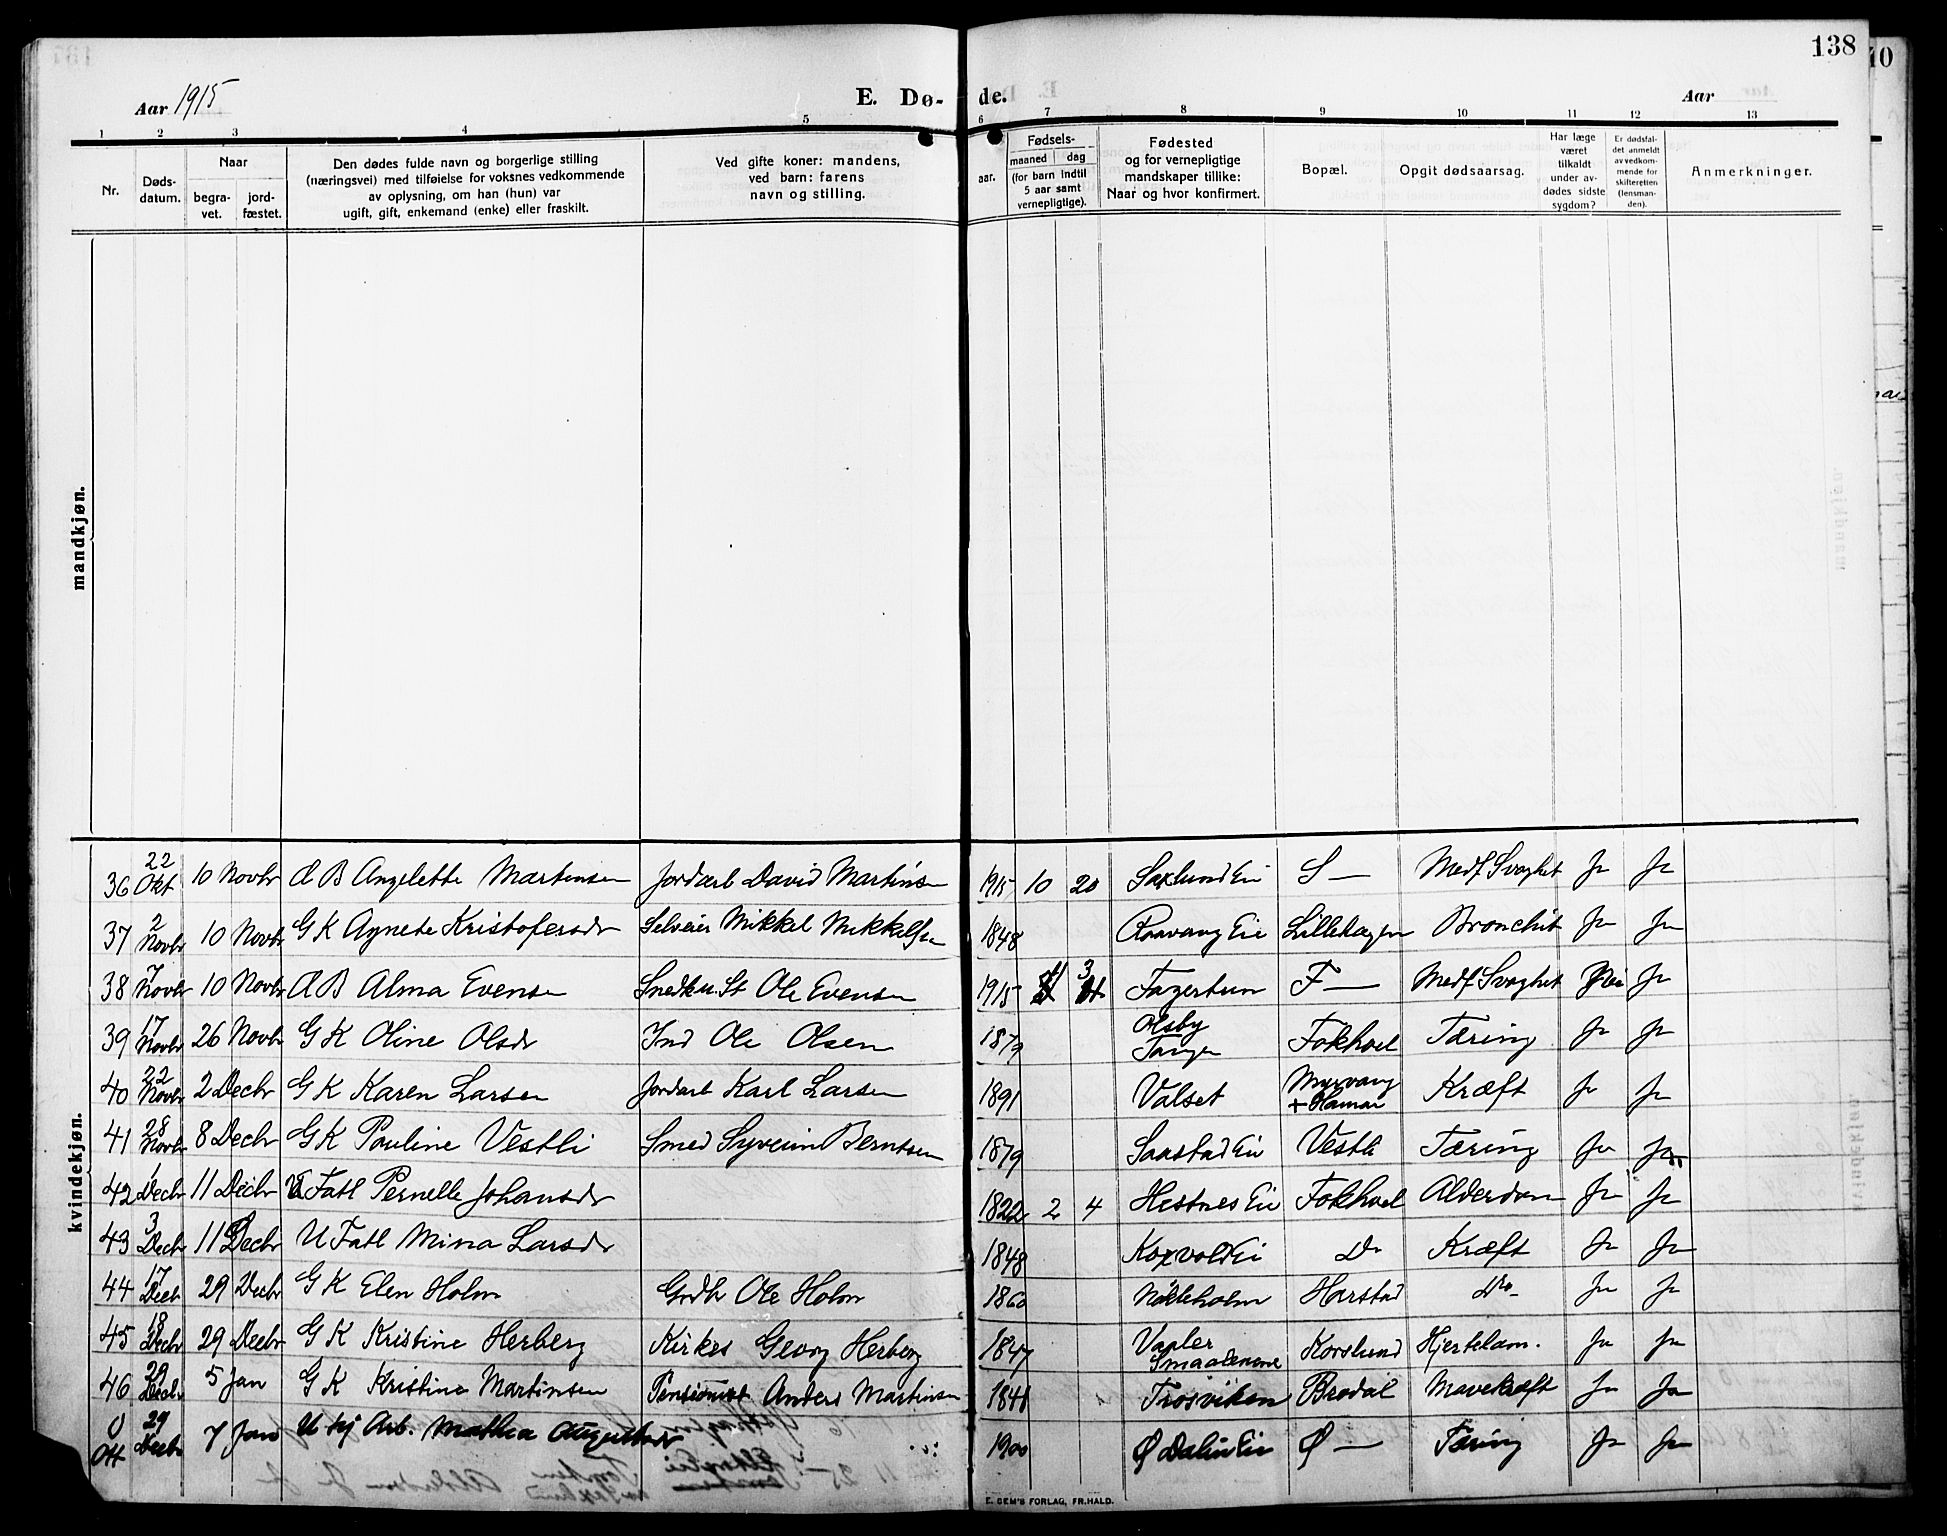 138
Aar 1915
E. Dø- de.
Aar
1 2 3 4 5 6 7 8 9 10 11 12 13
Nr.
Døds-
datum.
Naar
begra-
vet.
jord-
fæstet.
Den dødes fulde navn og borgerlige stilling
(næringsvei) med tilføielse for voksnes vedkommende
av oplysning, om han (hun) var
ugift, gift, enkemand (enke) eller fraskilt.
Ved gifte koner: mandens,
ved barn: farens
navn og stilling.
Fødsels-
aar.
maaned dag
(for barn indtil
5 aar samt
vernepligtige).
Fødested
og for vernepligtige
mandskaper tillike:
Naar og hvor konfirmert.
Bopæl.
Opgit dødsaarsag.
Har læge
været
tilkaldt
under av-
dødes sidste
sygdom?
Er dødsfal-
det anmeldt
av vedkom-
mende for
skifteretten
(lensman-
den).
Anmerkninger.
mandkjøn.
kvindekjøn.
36 22 Okt 10 Novbr B Angelette Martinsen Jordarb David Martinsen 1915 10 20 Saxlund Eie S — Medf Svaghet Ja Ja
37 2 Novbr 10 Novbr G K Agnete Kristofersdr Selveier Mikkel Mikkelsen 1848 Eie Lillehagen Bronchit Ja Ja
38 7 Novbr 10 Novbr B Alma Evensen Ole Evensen 1915 3 Fagertun F — Medf Svaghet Nei Ja
39 17 Novbr 26 Novbr G K Oline Olsdr Ind Ole Olsen 1879 Olsby Tangen Fokhoel Tæring Ja Ja
40 22 Novbr 2 Decbr G K Karen Larsen Jordarb Karl Larsen 1891 Valset Myrvang + Hamar Kræft Ja Ja
41 28 Novbr 8 Decbr G K Pauline Vestli Smed Syverin Berntsen 1879 Saastad Eie Vestli Tæring Ja Ja
42 1 Decbr 11 Decbr Fatl Pernelle Johansdr 1822 2 4 Hestnes Eie Fokhoel Alderdom Ja Ja
43 3 Decbr 11 Decbr U Fatl Mina Larsdr 1848 Koxvold Ei Do Kræft Ja Ja
44 17 Decbr 29 Decbr G K Elen Holm Grdbr Ole Holm 1860 Nökleholm Harstad Do Ja Ja
45 18 Decbr 29 Decbr G K Kristine Herberg Kirkes Georg Herberg 1847 Vapler Smaalenene Korslund Hjertelam. Ja Ja
46 29 Decbr 5 Jan G K Kristine Martinsen Pensionist Anders Martinsen 1841 Trosviken Brodal Mavekræft Ja Ja
29 Decbr 7 Jan U Arb. Mathea Augustsdr 1900 Ø Dalin Eie Ø — Tæring Ja Ja
E. SEM'S FORLAG, FR.HALD.